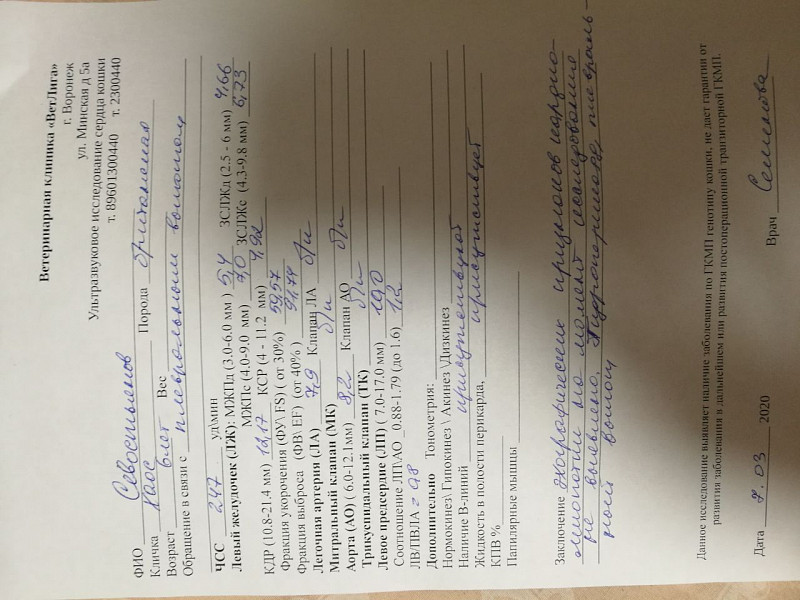 Ветеринарная клиника «ВетЛига»
г. Воронеж
ул. Минская д 5а
Ультразвуковое исследование сердца кошки
т. 89601300440 т. 2300440
ФИО Севостьянов
Кличка Хаос Порода британская
Возраст 6 лет Вес
Обращение в связи с плевральным выпотом
ЧСС 247 уд\мин
Левый желудочек (ЛЖ): МЖПд (3.0-6.0 мм) 5,4 ЗСЛЖд (2.5 - 6 мм) 4,66
МЖПс (4.0-9.0 мм) 7,0 ЗСЛЖс (4.3-9.8 мм) 6,73
КДР (10.8-21,4 мм) 12,17 КСР (4 - 11.2 мм) 4,92
Фракция укорочения (ФУ\ FS) ( от 30%) 59,57
Фракция выброса (ФВ\ EF) (от 40% ) 91,74
Легочная артерия (ЛА) 7,9 Клапан ЛА б/и
Митральный клапан (МК) б/и
Аорта (АО) ( 6.0-12.1мм) 8,2 Клапан АО б/и
Трикуспидальный клапан (ТК) б/и
Левое предсердие (ЛП) ( 7.0-17.0 мм) 10,0
Соотношение ЛП\АО 0.88-1.79 (до 1.6) 1,2
ЛВ/ПВЛА = 0,8
Дополнительно Тонометрия:
Нормокинез\ Гипокинез \ Акинез \Дизкинез
Наличие В-линий присутствуют
Жидкость в полости перикарда, присутствует
КПВ %
Папилярные мышцы
Заключение Эхографических признаков кардио-
миопатии на момент исследования
не выявлено. Гидроперикард, плевраль-
ный выпот
Данное исследование выявляет наличие заболевания по ГКМП генотипу кошки, не дает гарантии от
развития заболевания в дальнейшем или развития постоперационной транзиторной ГКМП.
Дата 7.03 2020 Врач Семенова